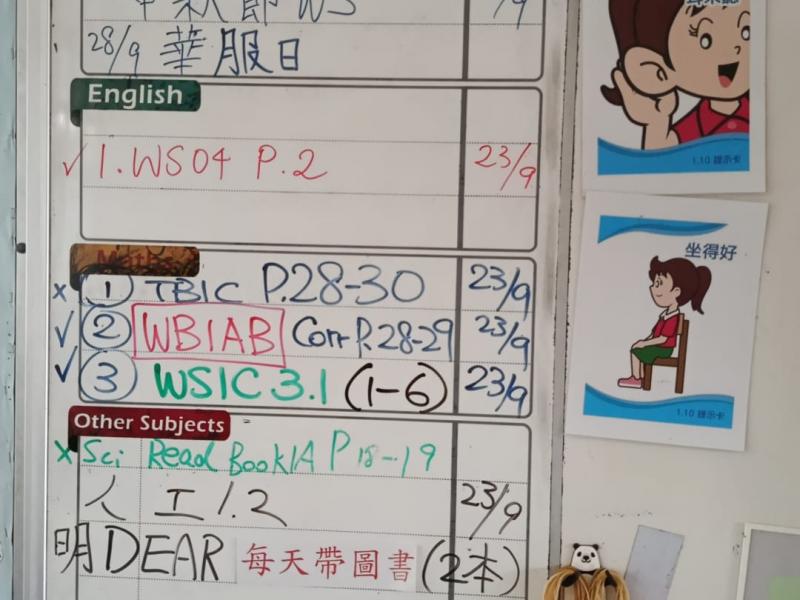 中秋節 WS /9
28/9 華服日
English
✓ 1. WS04 P.2 23/9
Maths
x ① TB1C P.28-30 23/9
✓ ② WB1AB Corr P.28-29 23/9
✓ ③ WS1C 3.1 (1-6) 23/9
Other Subjects
x Sci Read Book1A P 18-19
人 工1.2 23/9
明 DEAR 每天帶圖書 (2本)
1.10 提示卡
坐得好
1.10 提示卡